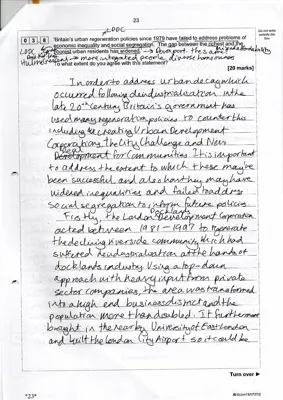 23
Do not write outside the box
0 3 8 'Britain's urban regeneration policies since 1979 have failed to address problems of
economic inequality and social segregation. The gap between the richest and the
poorest urban residents has widened.'
To what extent do you agree with this statement?
[20 marks]
LDDC
more integrated people, diverse homeowners
In order to address urban decay which
occurred following deindustrialisation in the
late 20th Century, Britain's government has
used many regeneration policies to counter this
including the creating Urban Development
Corporations, the City Challenge and New
Deal for Communities. It is important
to address the extent to which these may have
been successful, and also how they may have
widened inequalities and failed to address
social segregation to inform future policies.
Firstly, the London Docklands Development Corporation
acted between 1981-1997 to regenerate
the declining riverside community which had
suffered deindustrialisation at the hands of
docklands industry. Using a top-down
approach with heavy input from private
sector companies, the area was transformed
into a high end business district and the
population more than doubled. It furthermore
brought in the nearby University of East London
and built the London City Airport so it could be
Turn over ►
*23*